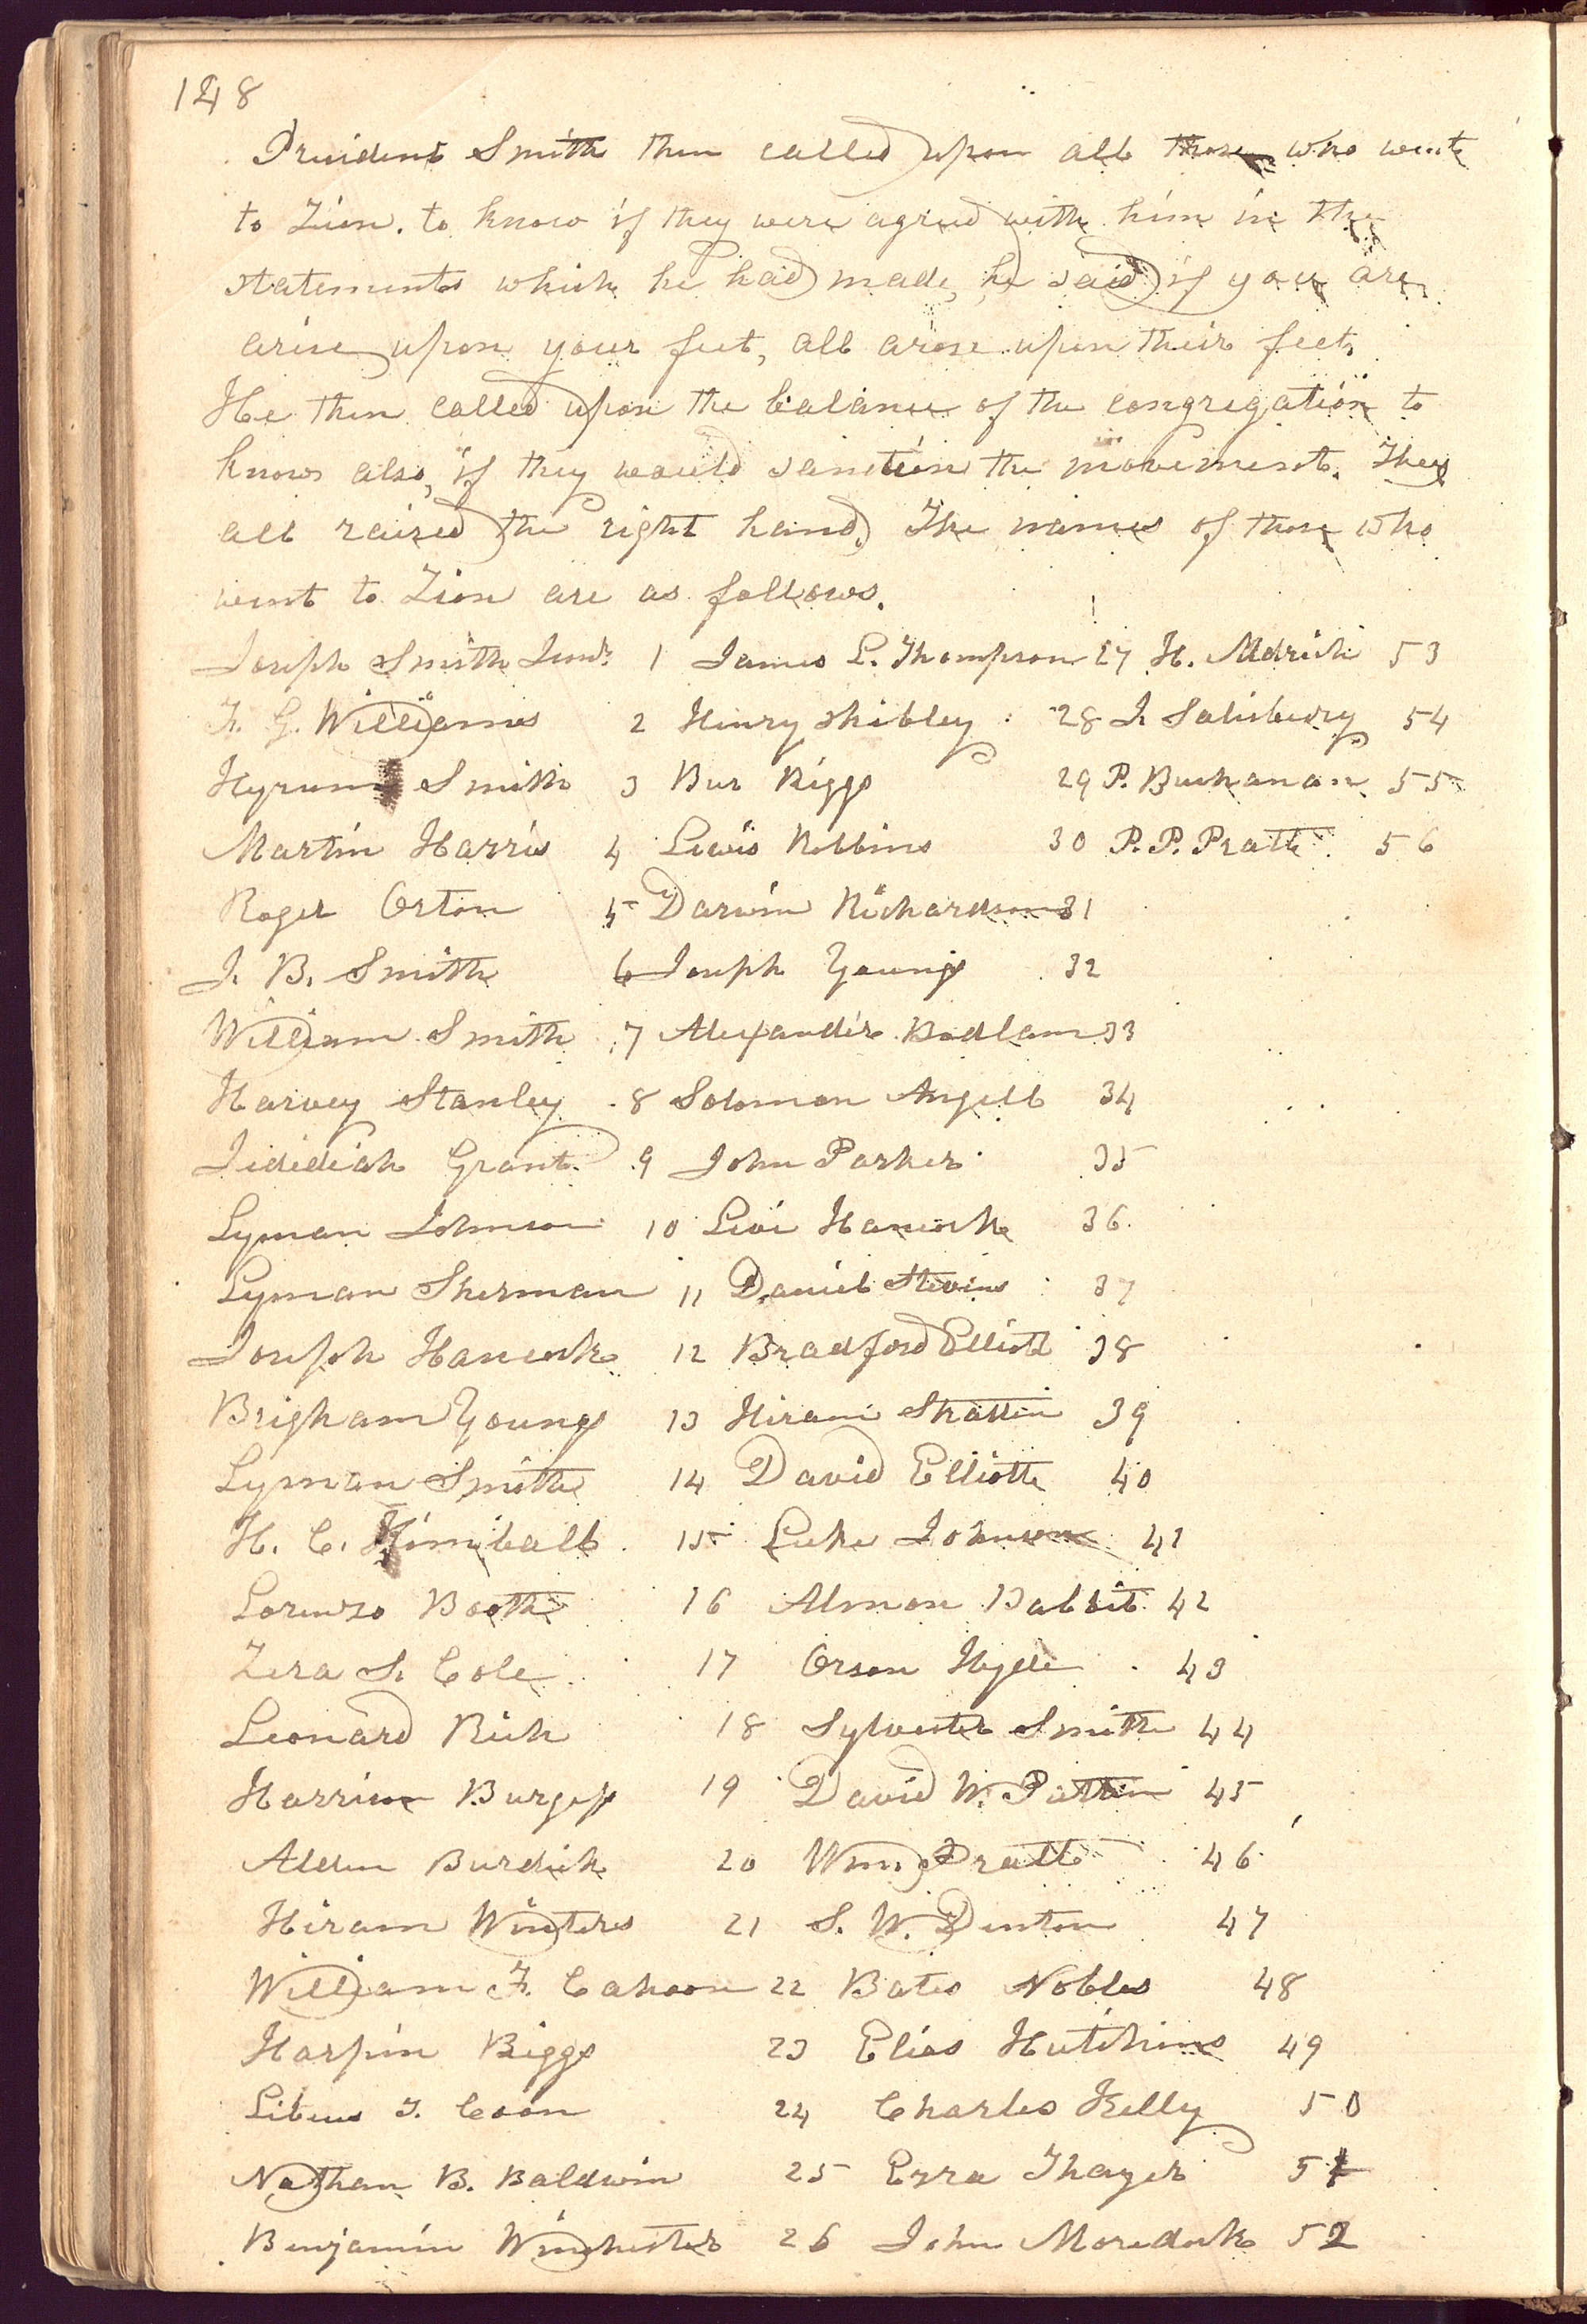 148
President Smith then called upon all those who went
to Zion. to know if they were agreed with him in the
statements which he had made, he said if you are
arise upon your feet, all arose upon their feet.
He then called upon the balance of the congregation to
know also, if they would sanction the movement. They
all raised the right hand. The names of those who
went to Zion are as follows.
Joseph Smith Junr. 1 James L. Thompson 27 H. Aldrich 53
F. G. Williams 2 Henry Shibley 28 J. Salisbury 54
Hyrum Smith 3 Bur Riggs 29 P. Buchanan 55
Martin Harris 4 Lewis Robbins 30 P. P. Pratt 56
Roger Orton 5 Darwin Richardson 31
J. B. Smith 6 Joseph Young 32
William Smith 7 Alexander Badlam 33
Harvey Stanley 8 Solomon Angell 34
Jedediah Grant 9 John Parker 35
Lyman Johnson 10 Levi Hancock 36
Lyman Sherman 11 Daniel Stevins 37
Joseph Hancock 12 Bradford Elliott 38
Brigham Young 13 Hiram Stratten 39
Lyman Smith 14 David Elliott 40
H. C. Kimball 15 Luke Johnson 41
Lorenzo Booth 16 Almon Babbit 42
Zera S. Cole 17 Orson Hyde 43
Leonard Rich 18 Sylvester Smith 44
Harrison Burgess 19 David W. Patten 45
Alden Burdick 20 Wm. Pratt 46
Hiram Winters 21 S. W. Denton 47
William F. Cahoon 22 Bates Nobles 48
Harpin Riggs 23 Elias Hutchins 49
Libeus T. Coon 24 Charles Kelly 50
Nathan B. Baldwin 25 Ezra Thayer 51
Benjamin Winchester 26 John Moredock 52